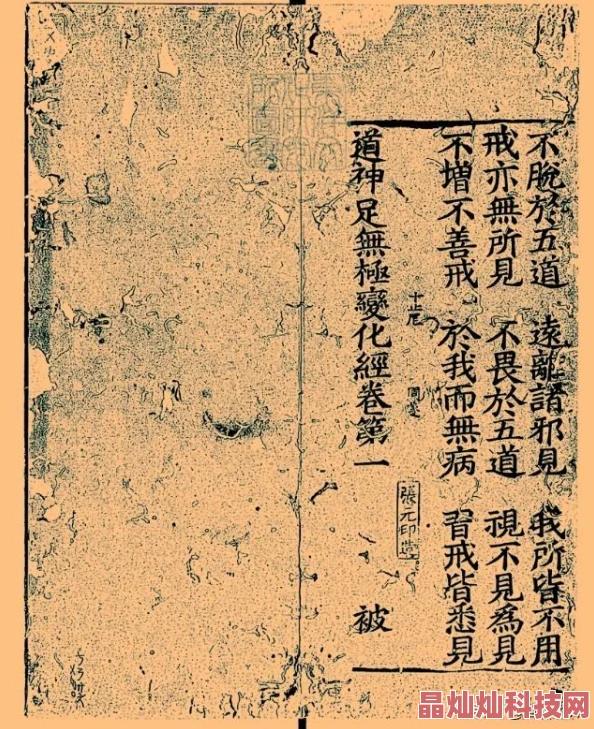 不脫於五道　遠離諸邪見　我所皆不用
戒亦無所見　不畏於五道　視不見為見
不增不善戒　於我而無病　習戒皆悉見
道神足無極變化經卷第一　被
張元印造
晶灿灿科技网